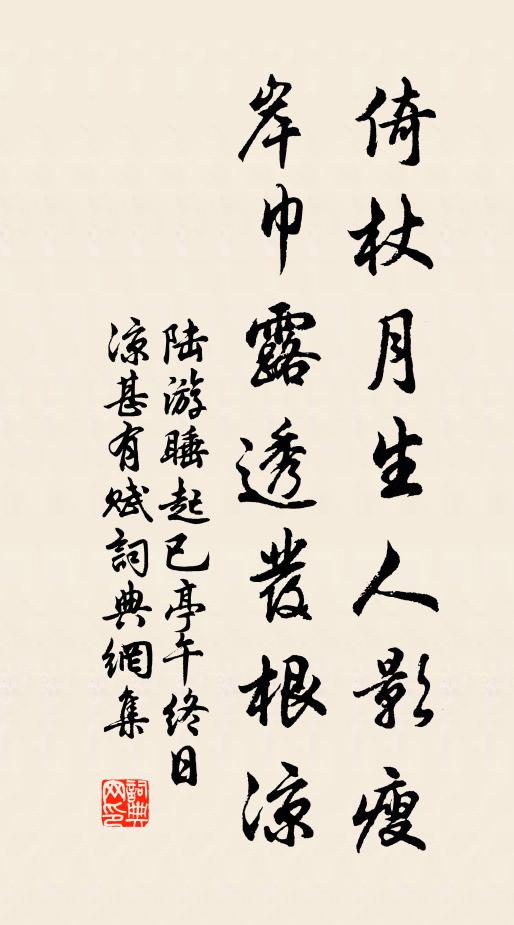 倚杖月生人影瘦
岸巾露透發根涼
陆游睡起已亭午终日
涼甚有赋詞典網集
詞典
网印